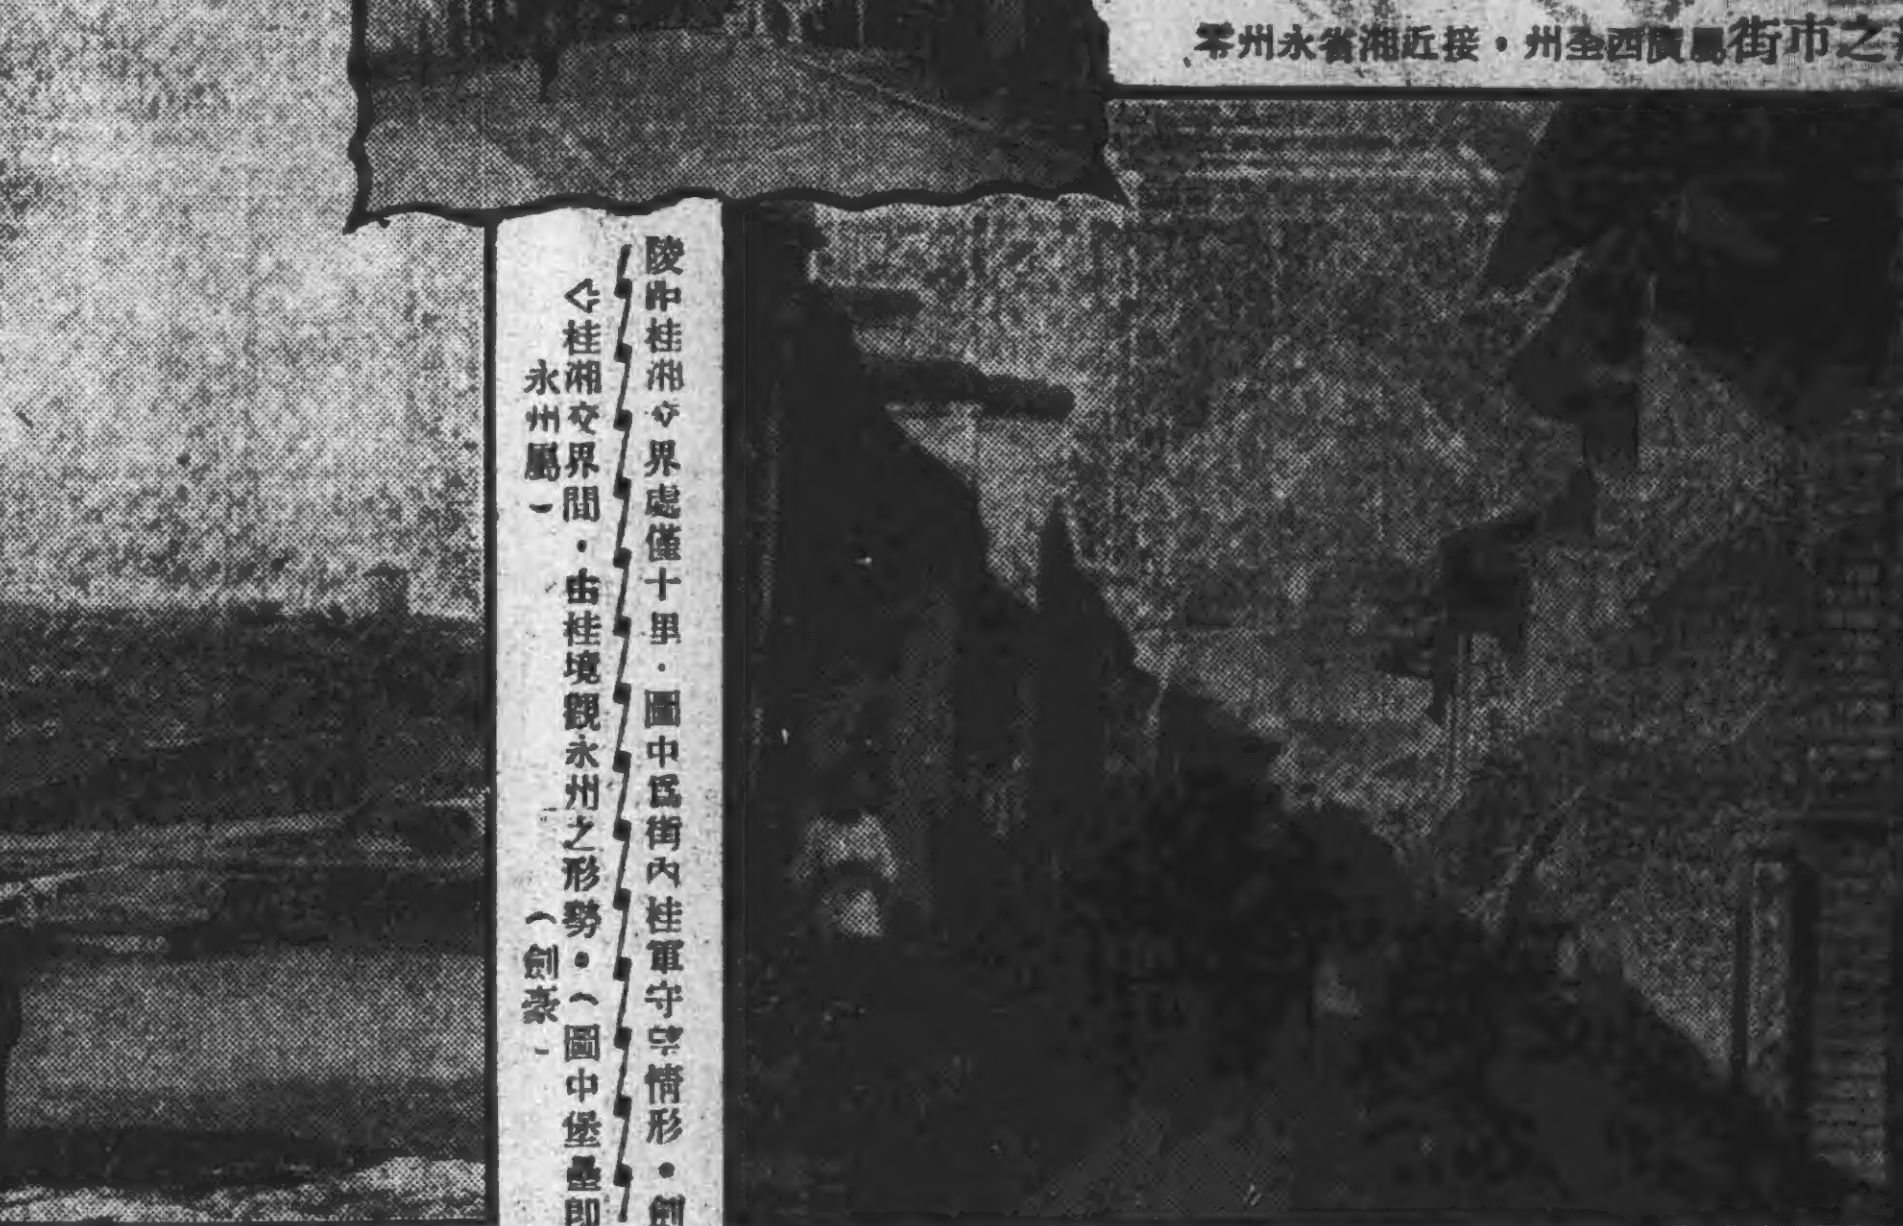 之市街屬廣西全州・接近湘省永州零
陵距桂湘交界處僅十里・圖中爲街內桂軍守望情形・劍
桂湘交界間・由桂境觀永州之形勢・（圖中堡壘即
永州屬）　（劍豪）